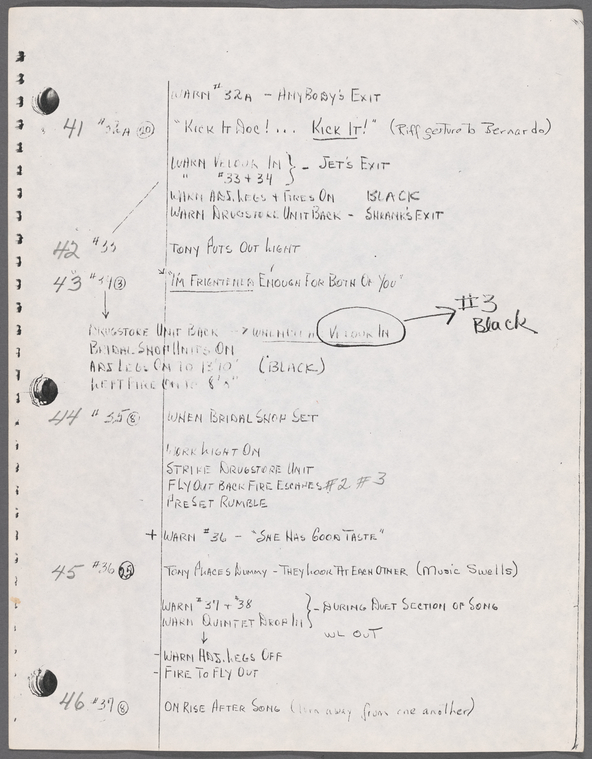 WARN #32A - ANYBODY'S EXIT
41 #32A (20) "KICK IT DOC! ... KICK IT!" (Riff gesture to Bernardo)
WARN VELOUR IN } - JET'S EXIT
" #33 + 34
WARN ADJ. LEGS + FIRES ON BLACK
WARN DRUGSTORE UNIT BACK - SHRANK'S EXIT
42 #33 TONY PUTS OUT LIGHT
43 #34 (3) "I'M FRIGHTENED ENOUGH FOR BOTH OF YOU"
DRUGSTORE UNIT BACK → WHEN VELOUR IN → #3
Black
BRIDAL SHOP UNITS ON
ADJ. LEGS ON TO 13'10" (BLACK)
LEFT FIRE ON TO 8'
44 #35 (8) WHEN BRIDAL SHOP SET
WORK LIGHT ON
STRIKE DRUGSTORE UNIT
FLY OUT BACK FIRE ESCAPES #2 #3
PRESET RUMBLE
+ WARN #36 - "SHE HAS GOOD TASTE"
45 #36 TONY PLACES DUMMY - THEY LOOK AT EACH OTHER (MUSIC SWELLS)
WARN #37 + #38 } - DURING DUET SECTION OF SONG
WARN QUINTET DROP IN
WL OUT
- WARN ADJ. LEGS OFF
- FIRE TO FLY OUT
46 #37 (8) ON RISE AFTER SONG (turn away from one another)